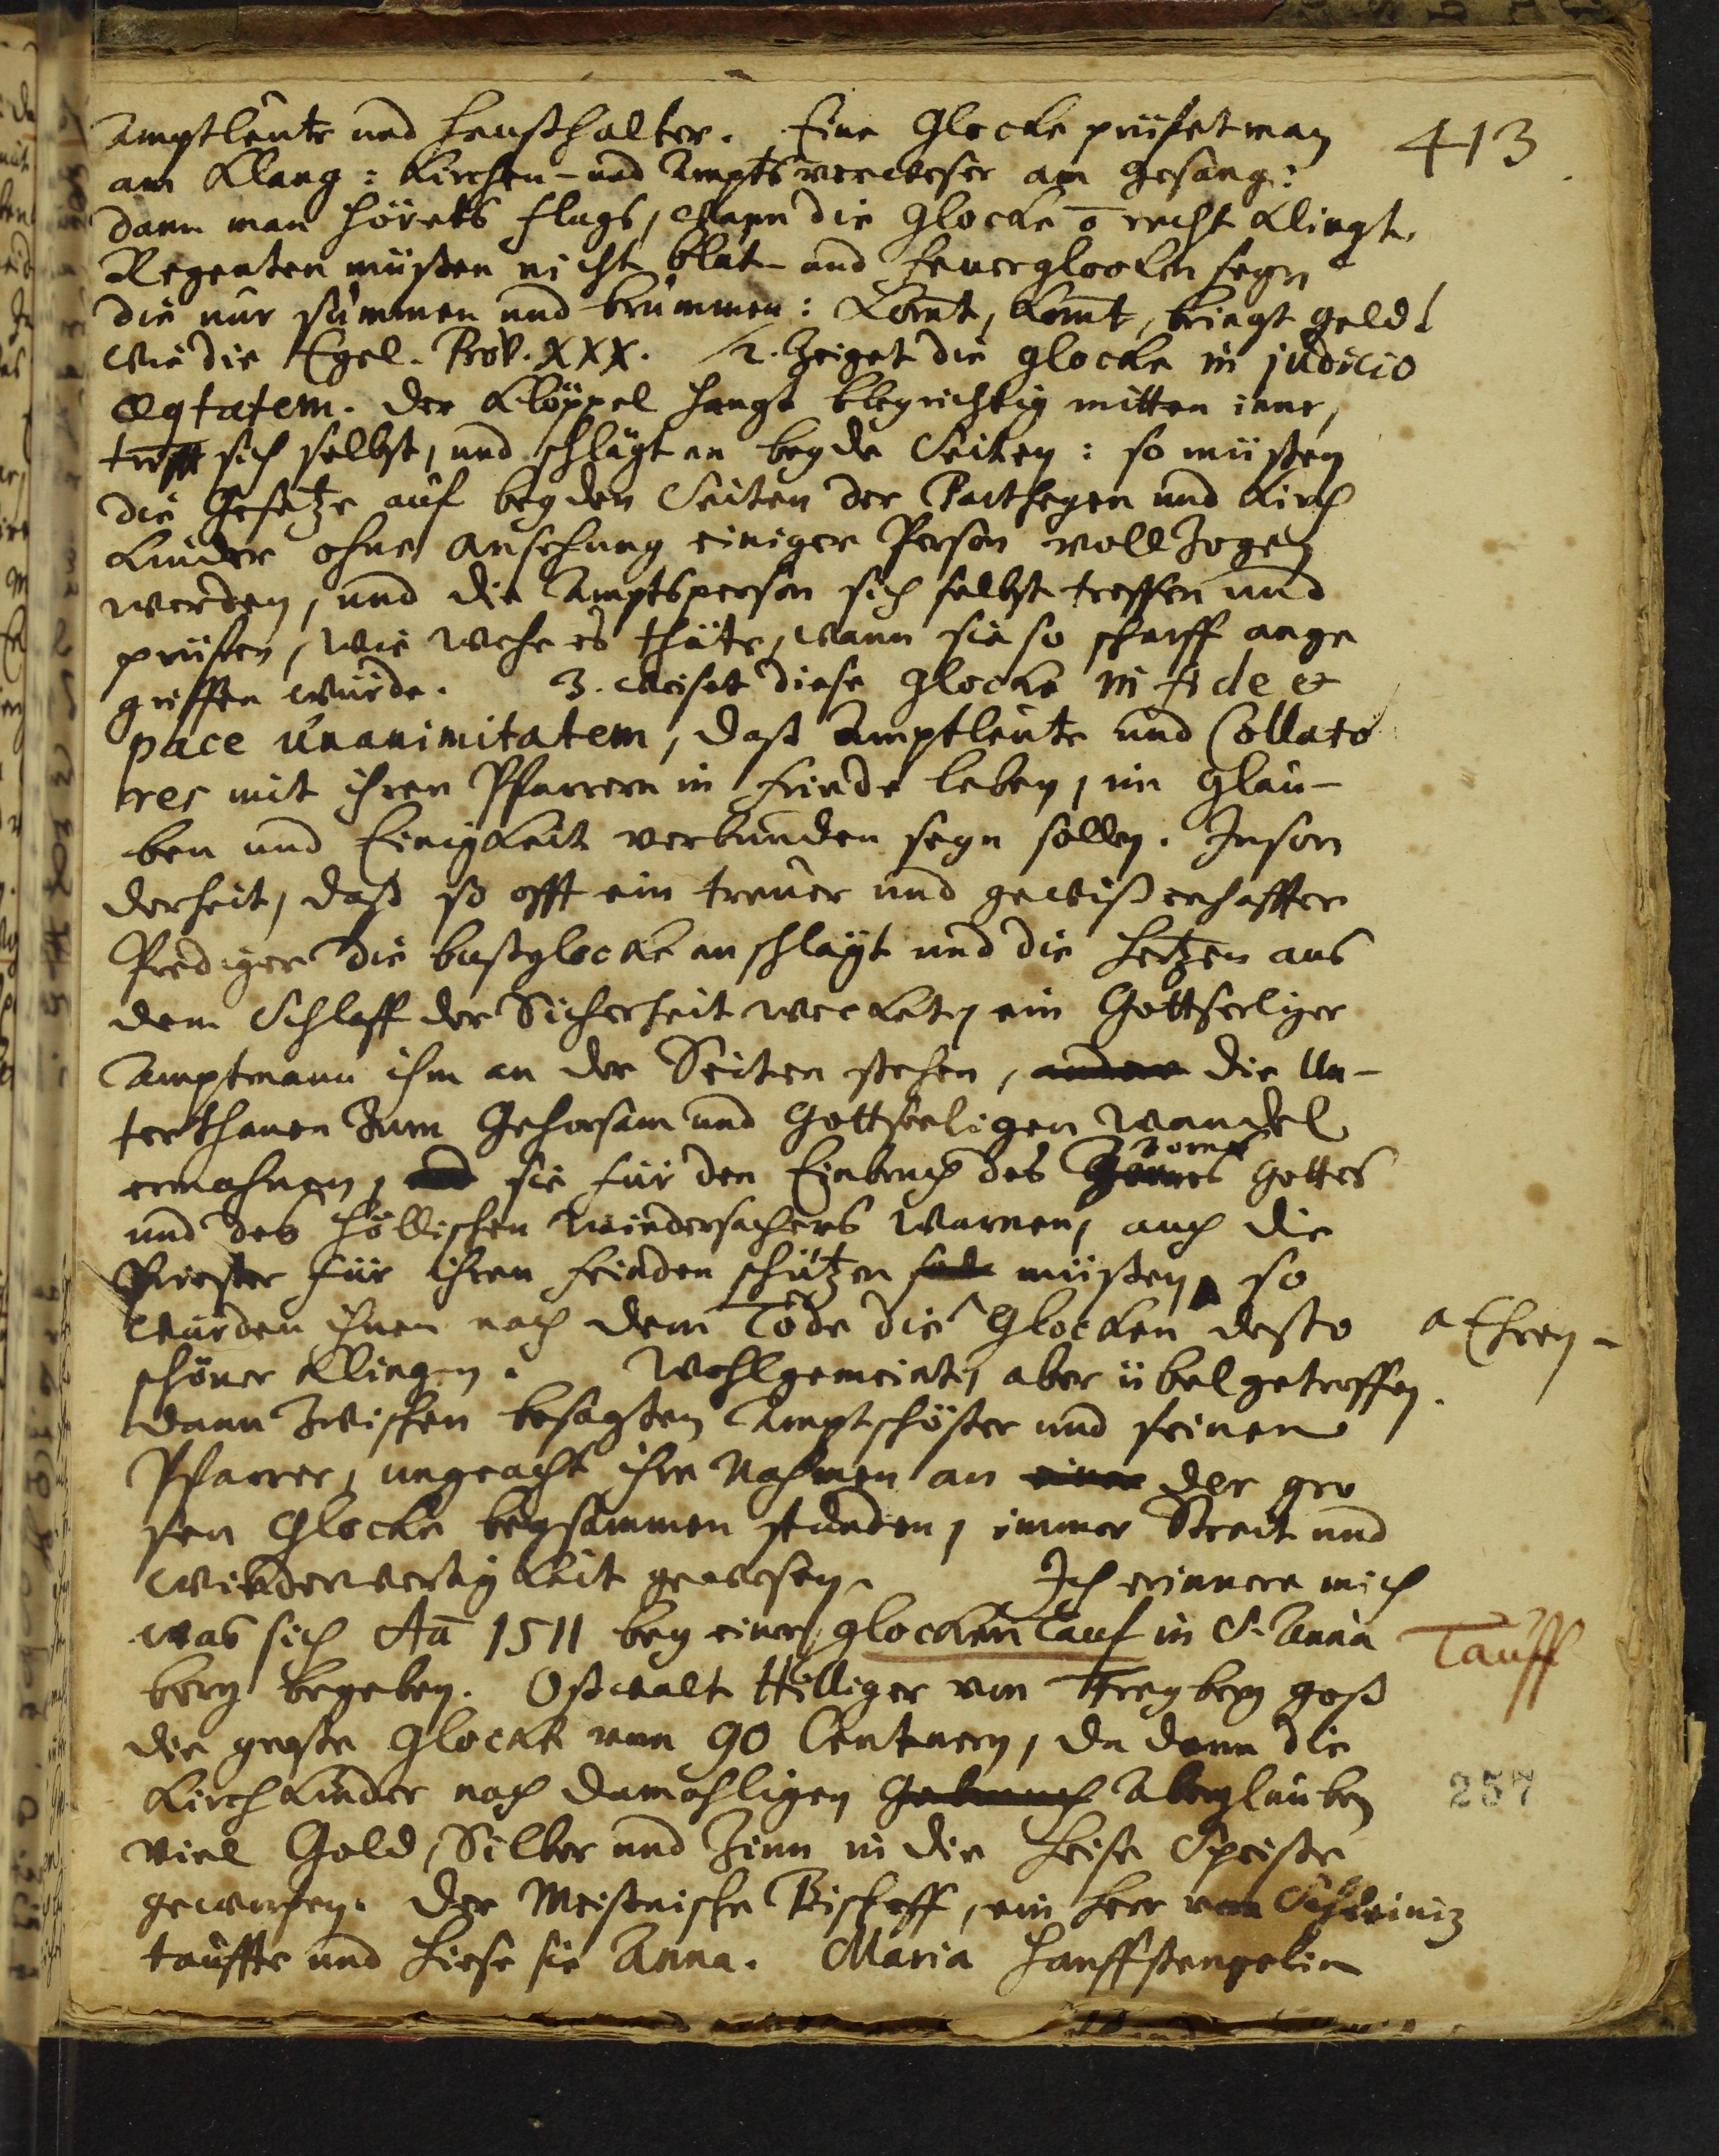 413
Amptleute und Haußhalter. Eine Glocke prüfet man
am Klang: Kirchen- und Ampts verweser am Gesang:
dann man hörets flugs, wann die Glocke ō recht klingt.
Regenten müßen nicht blut- und feuerglocken seyn
die nur sümmen und brummen: Kom̄t, kom̄t, bringt geld!
wie die Egel. Prov. XXX. 2. Zeiget die Glocke in judicio
æqtatem. Der Klöppel hangt bleyrichtig mitten inne,
trifft sich selbst, und schlägt an beyde Seiten: so müsten
die Gesetze auf beyden Seiten der Partheyen und Kirch
kinder ohne ansehung einiger Person vollzogen
werden, und die Amptsperson sich selbst treffen und
prüfen, wie wehe es thäte, wann sie so scharff ange
griffen würde. 3. weiset diese Glocke in fide et
pace unanimitatem, daß Amptleute und Collato
res mit ihren Pfarrern in Friede leben, im Glau-
ben und Einigkeit verbunden seyn sollen. Inson
derheit, daß so offt ein treuer und gewißenhaffter
Prediger die bußglocke anschlägt und die Hertzen aus
dem Schlaff der Sicherheit wecket, ein Gottseeliger
Amptmann ihm an der Seiten stehen, die Un-
terthanen zum Gehorsam und Gottseeligen Wandel
ermahnen, und sie für den Einbruch des Zornes Zorns Gottes
und des höllischen Wiedersachers warnen, auch die
Priester für ihren feinden schützen müßen, so
würden ihnen nach dem Tode die Glocken desto
a Ehren-
schöner klingen. Wohlgemeint, aber übel getroffen.
dann zwischen besagten Amptschößer und seinen
Pfarrer, ungeacht ihre Nahmen an einer der gro
sen Glocke beysammen stunden, immer Streit und
wiederwertigkeit gewesen. Ich erinnere mich
was sich Aō 1511 bey einer glocken Tauf in S. Anna
Tauff
berg begeben. Oßwalt Hilliger von Freyberg goß
die große Glocke von 90 Centnern, da dann die
Kirchkinder nach damahligen Gebrauch Aberglauben
257
viel Gold, Silber und Zinn in die heise Speiße
geworfen. Der Meisnische Bischoff, ein Herr von Schleiniz
tauffte und hiese sie Anna. Maria Hanffstengelin